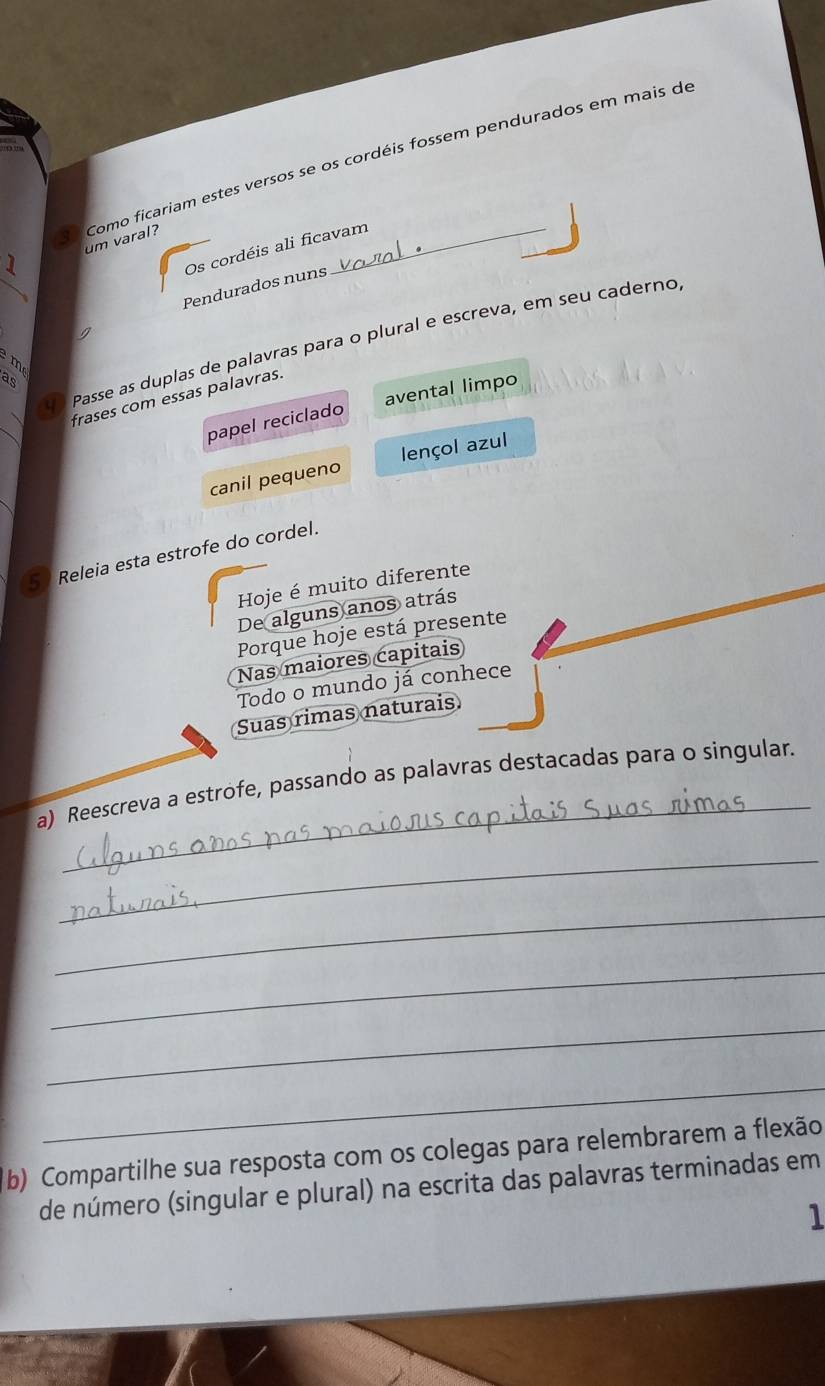 3 Como ficariam estes versos se os cordéis fossem pendurados em mais de
um varal?
Os cordéis ali ficavam
Pendurados nuns varal.
4 Passe as duplas de palavras para o plural e escreva, em seu caderno,
frases com essas palavras.
papel reciclado
avental limpo
canil pequeno
lençol azul
5 Releia esta estrofe do cordel.
Hoje é muito diferente
De alguns anos atrás
Porque hoje está presente
Nas maiores capitais
Todo o mundo já conhece
Suas rimas naturais.
a) Reescreva a estrofe, passando as palavras destacadas para o singular.
Alguns anos nas maiorus capitais Suas rimas
naturais.
b) Compartilhe sua resposta com os colegas para relembrarem a flexão
de número (singular e plural) na escrita das palavras terminadas em
1
1
as